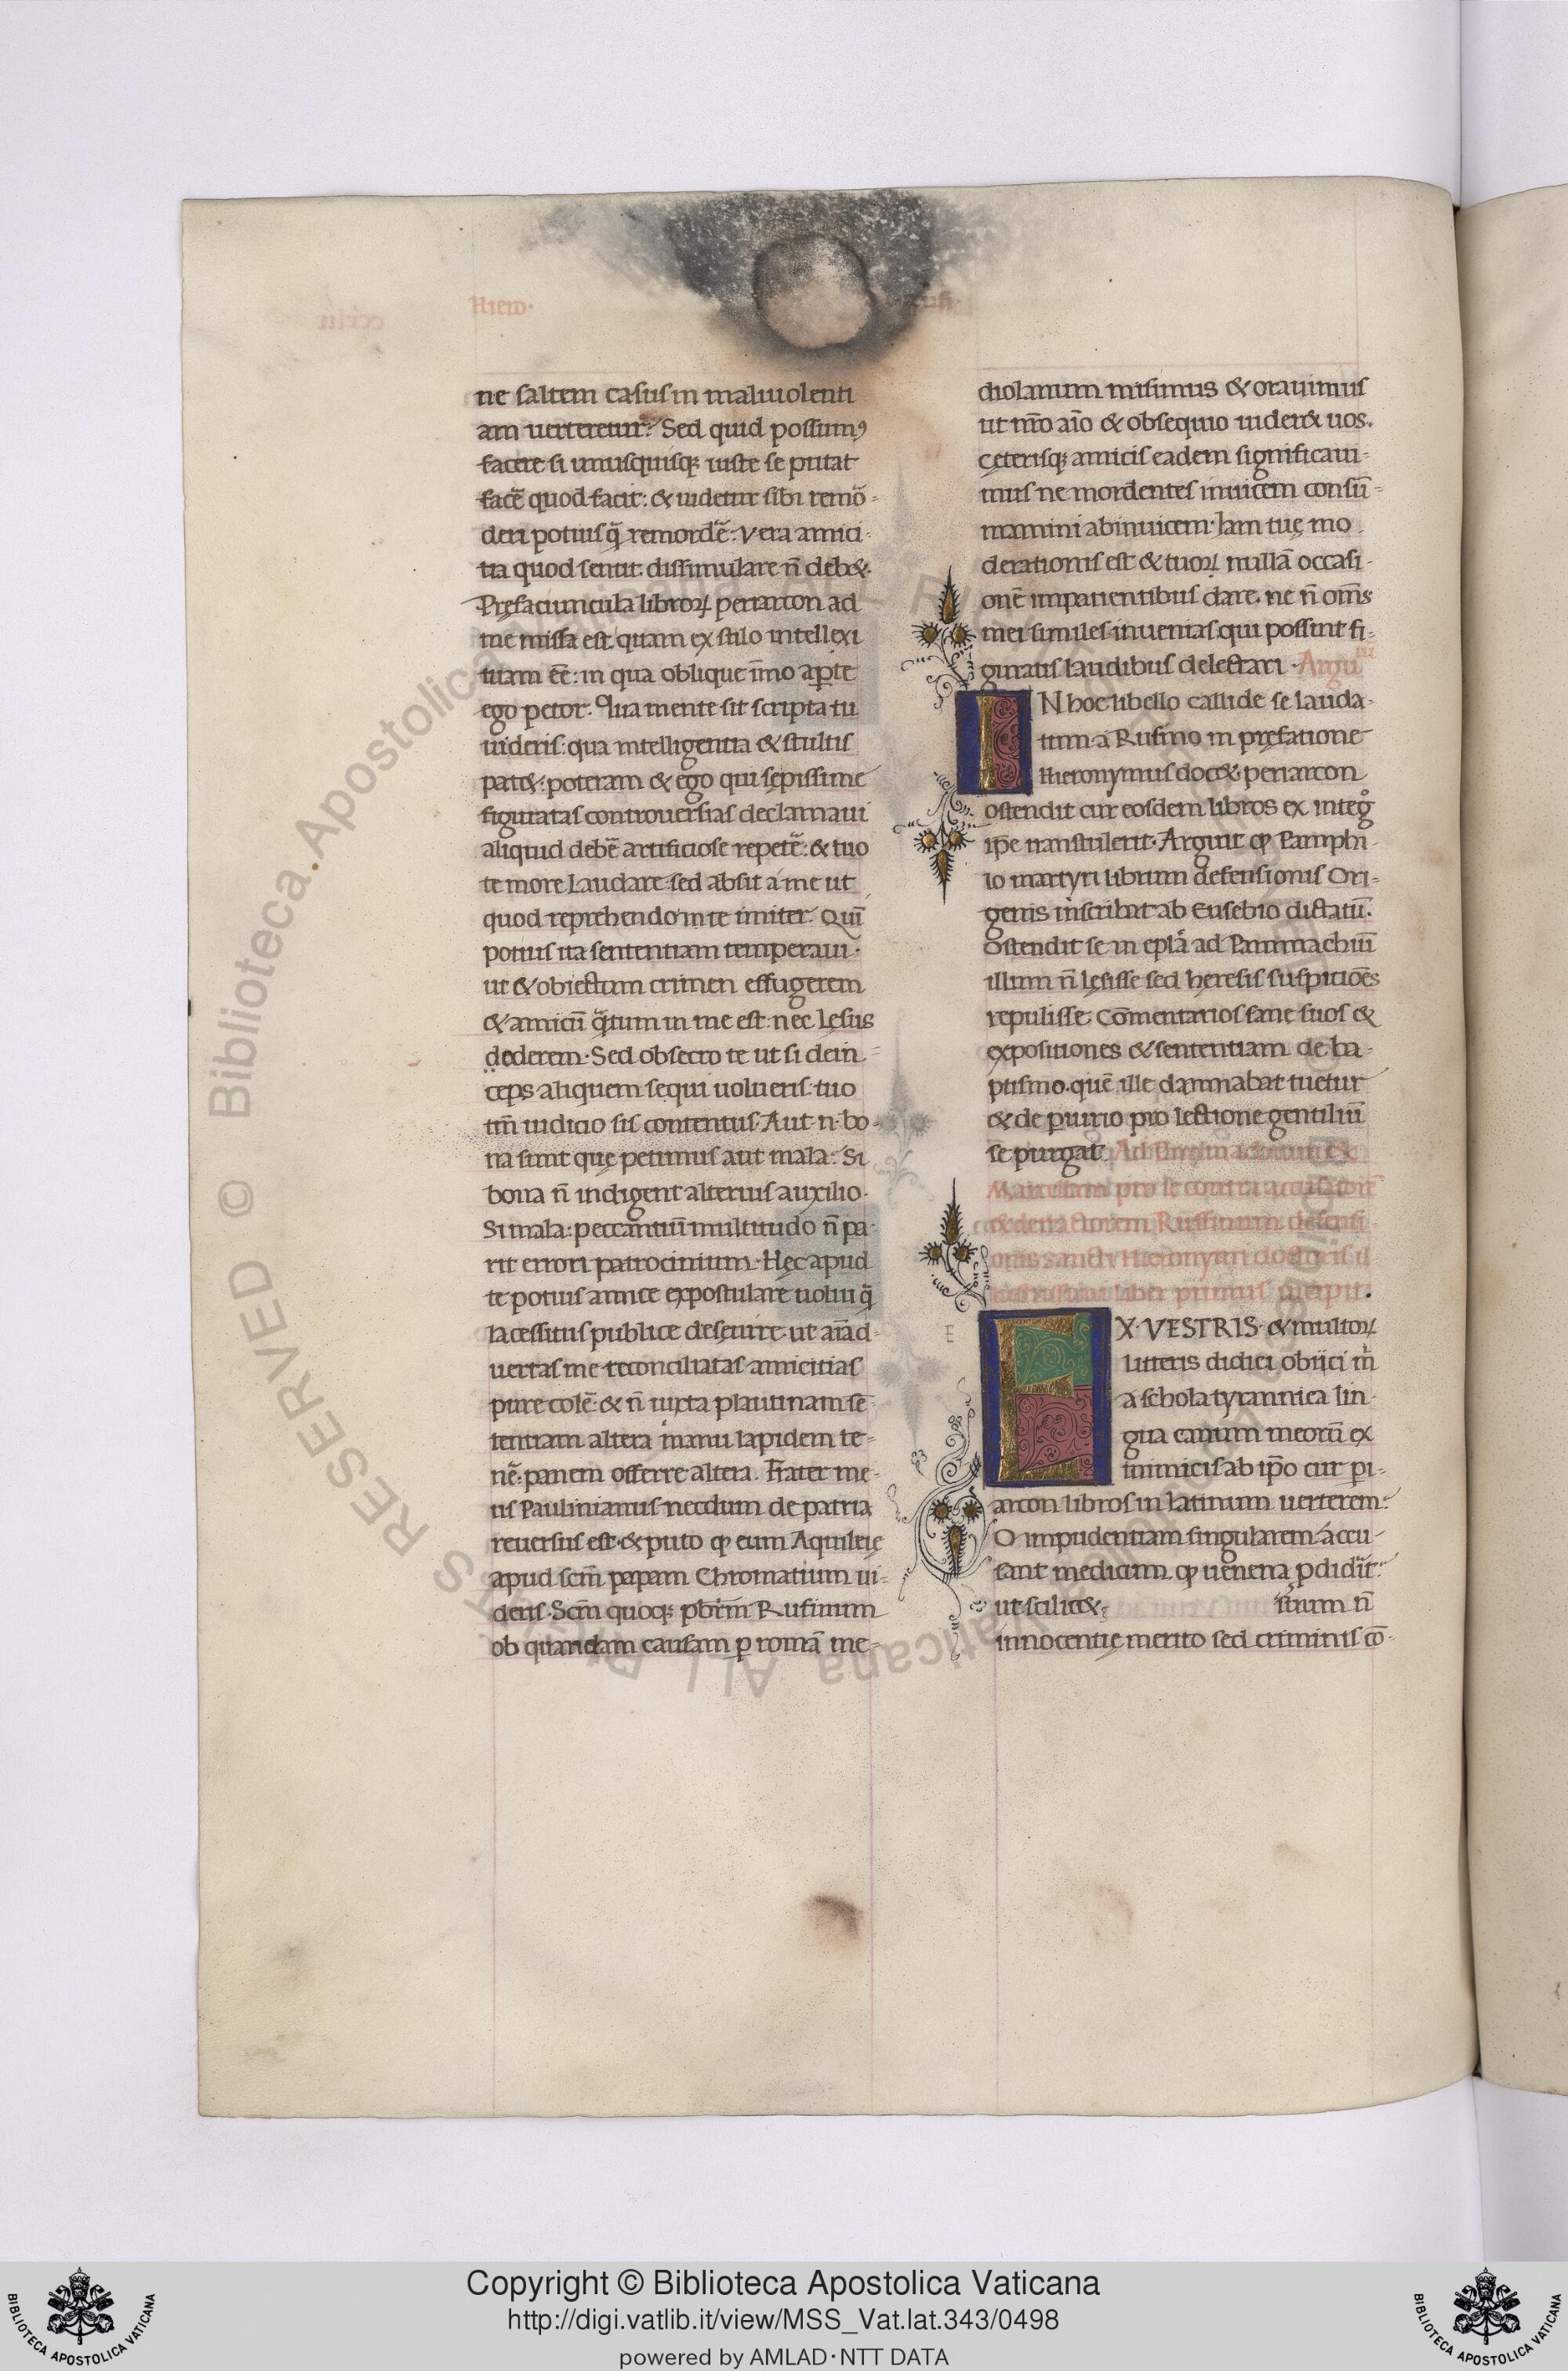 Hiero·
ne saltem casus in maliuolenti
am uerteretur? Sed quid possumꝰ
facere si unusquisqꝫ iuste se putat
facẽ quod facit: & uidetur sibi remõ-
deri potius q̃ remordẽ: Vera amici-
tia quod sentit dissimulare ñ deb&·
Pręfaciuncula libroꝝ periarcon ad
me missa est quam ex stilo intellexi
tuam eẽ: in qua oblique ĩmo aꝑte
ego petor. Qua mente sit scripta tu
uideris: qua intelligentia & stultis
pat&: poteram & ego qui sępissime
figuratas controuersias declamaui
aliquid debẽ artificiose repetẽ: & tuo
te more laudare sed absit a me ut
quod reprehendo in te imiter. Quĩ
potius ita sententiam temperaui·
ut & obiectum crimen effugerem
& amicũ q̃tum in me est: nec lęsus
lęderem· Sed obsecro te ut si dein-
ceps aliquem sequi uolueris: tuo
tm̃ iudicio sis contentus· Aut n· bo-
na sunt quę petimus aut mala: Si
bona ñ indigent alterius auxilio·
Si mala: peccantiũ multitudo ñ pa-
rit errori patrocinium· Hęc apud
te potius amice expostulare uolui q̃
lacessitus publice deseuire· ut aĩad-
uertas me reconciliatas amicitias
pure colẽ: & ñ iuxta plautinam sẽ-
tentiam altera manu lapidem te-
nẽ: panem offerre altera. Frater me-
us Paulinianus necdum de patria
reuersus est· & puto ꝙ eum Aquileię
apud scm̃ papam Chromatium ui-
deris· Scm̃ quoqꝫ pbrm̃ Rufinum
ob quandam causam ꝑ romã me-
diolanum misimus & orauimus
ut nr̃o aĩo & obsequio uider& uos.
Cęterisqꝫ amicis eadem significaui-
mus ne mordentes inuicem consũ-
mamini abinuicem· Iam tuę mo
derationis est & tuoꝝ nullã occasi-
onẽ impatientibus dare. ne ñ om̃s
mei similes inuenias qui possint fi-
guratis laudibus delectari· Argu
IN hoc libello callide se lauda-
tum a Rufino in pręfatione
Hieronymus doc&· periarcon
ostendit cur eosdem libros ex integͦ
ip̃e transtulerit· Arguit ꝙ Pamphi-
lo martyri librum defensionis Ori-
genis inscribat ab Eusebio dictatũ.
Ostendit se in epl̃a ad Pammachiũ
illum ñ lęsisse sed hęresis suspitiões
repulisse· Cõmentarios sane suos &
expositiones & sententiam de ba-
ptismo· quẽ ille damnabat tuetur
& de ꝑiurio pro lectione gentiliũ
se purgat· Ad
Marcellam pro se contra accusatorẽ
& detractorem Ruffinum defensi-
onis sancti Hieronymi doctoris il
lustrissimi liber primus incipit.
E
EX· VESTRIS· & multoꝝ
litteris didici obiici m̃
a schola tyrannica lin-
gua canum meorũ ex
inimicis ab ip̃o cur pi-
arcon libros in latinum uerterem?
O impudentiam singularem· accu-
sant medicum ꝙ uenena ꝓdiderit?
ut scilic&
strum ñ
innocentię merito sed criminis cõ-
© Biblioteca Apostolica Vaticana ALL RIGHTS RESERVED
Copyright © Biblioteca Apostolica Vaticana
http://digi.vatlib.it/view/MSS_Vat.lat.343/0498
powered by AMLAD·NTT DATA
BIBLIOTECA APOSTOLICA VATICANA
BIBLIOTECA APOSTOLICA VATICANA